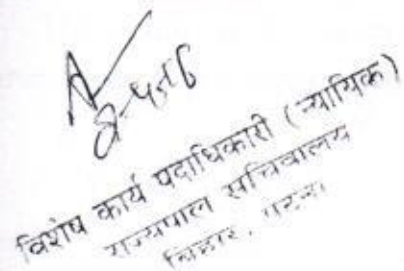 विशेष कार्य पदाधिकारी (न्यायिक)
राज्यपाल सचिवालय
बिहार, पटना